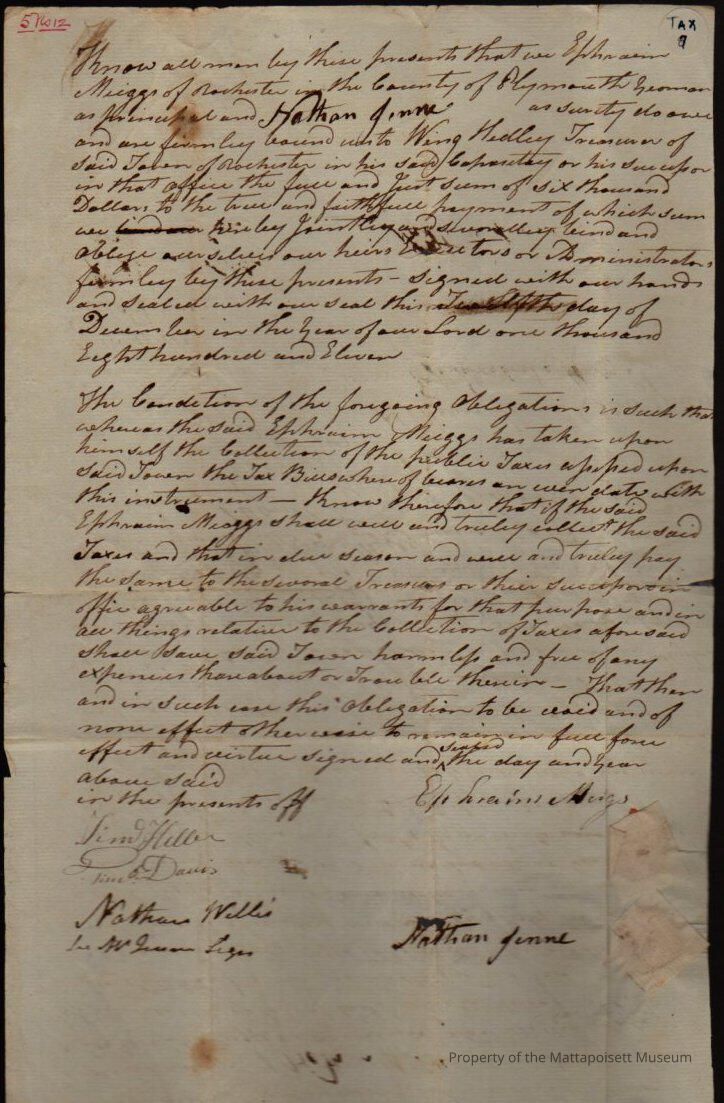 5 No 12
TAX
9
Know all men by these presents that we Ephraim
Meiggs of Rochester in the County of Plymouth Yeoman
as principal and Nathan Jenne as surity do owe
and are firmley bound unto Wing Hedley Treasurer of
said Town of Rochester in his said Capasetay or his successor
in that office the full and Just sum of six thousand
Dollars to the true and faithfull payment of which sum
we herebey Jointley and severalley bind and
oblige ourselves our heirs Executors or Administrators
firmley by these presents - signed with our hands
and sealed with our seal this Twelfth day of
December in the Year of our Lord one thousand
Eight hundred and Eleven
The Condetion of the foregoing Obligations is such that
whereas the said Ephraim Meiggs has taken upon
himself the Collection of the publie Taxes assessed upon
said Town the Tax Bills whereof beares an even date with
this instrument - Know therefore that if the said
Ephraim Meiggs shall well and truley collect the said
Taxes and that in due season and well and truley pay
the same to the several Treasurs or their successors in
offic agreable to his warrants for that purpose and in
all things relative to the Collection of Taxes aforesaid
shall save said Town harmless and free of any
expences thareabout or Trouble therein - That then
and in such case this Obligation to be void and of
none effect otherwise to remain in full force
effect and virtue signed and sealed the day and year
above said
in the presents off
Ephraim Meigs
Davis
Nathan Willis
Nathan Jenne
Property of the Mattapoisett Museum